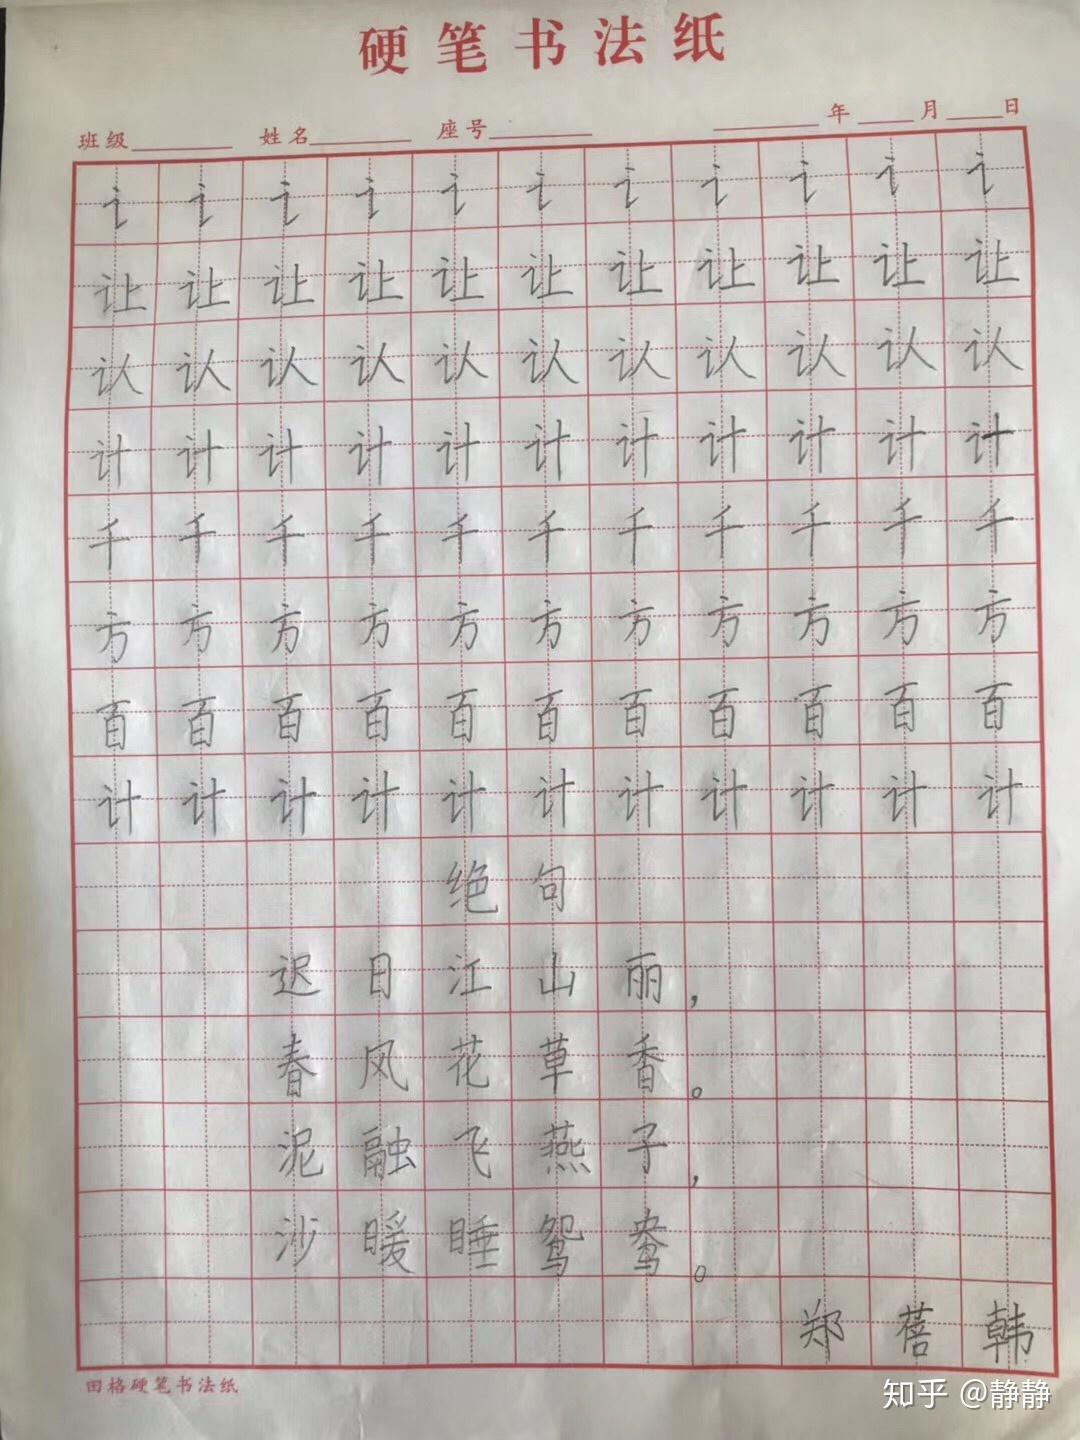 硬笔书法纸
班级 姓名 座号 年 月 日
讠讠讠讠讠讠讠讠讠讠讠
让让让让让让让让让让让
认认认认认认认认认认认
计计计计计计计计计计计
千千千千千千千千千千千
方方方方方方方方方方方
百百百百百百百百百百百
计计计计计计计计计计计
绝句
迟日江山丽，
春风花草香。
泥融飞燕子，
沙暖睡鸳鸯。
郑蓓韩
田格硬笔书法纸
知乎 @静静